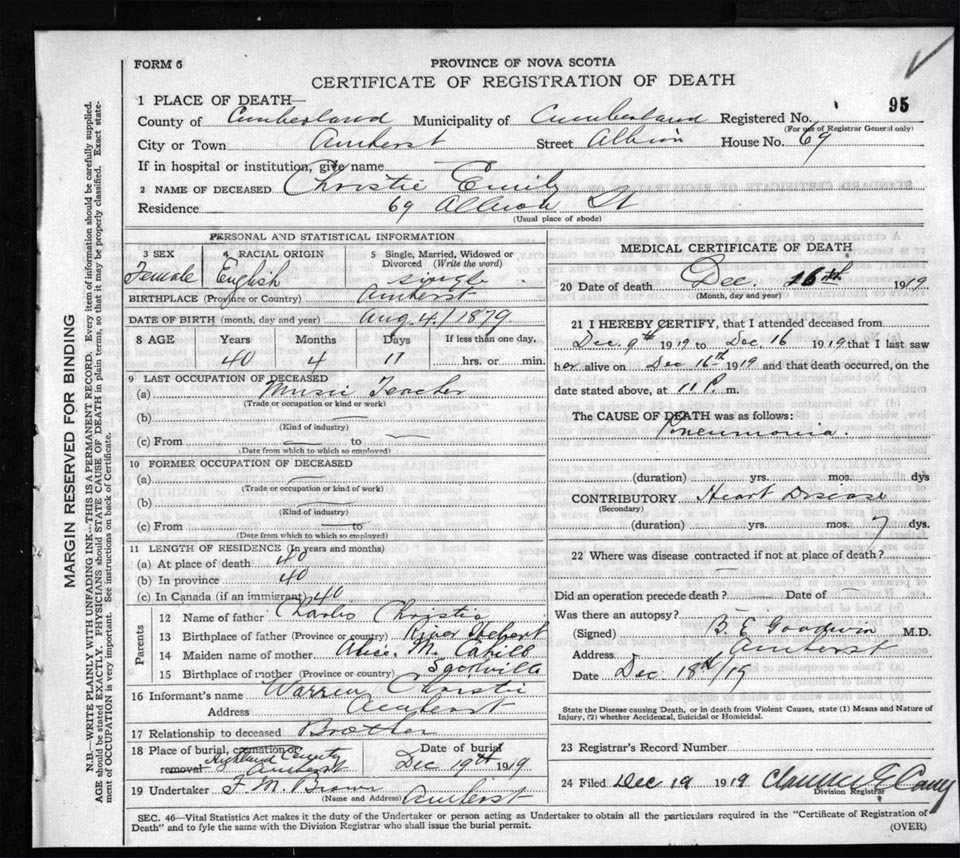 FORM 6
PROVINCE OF NOVA SCOTIA
CERTIFICATE OF REGISTRATION OF DEATH
95
1 PLACE OF DEATH—
County of Cumberland Municipality of Cumberland Registered No.
(For use of Registrar General only)
City or Town Amherst Street Albion House No. 69
If in hospital or institution, give name
2 NAME OF DECEASED Christie Emily
Residence 69 Albion St
(Usual place of abode)
PERSONAL AND STATISTICAL INFORMATION
3 SEX Female
4 RACIAL ORIGIN English
5 Single, Married, Widowed or Divorced (Write the word) single
BIRTHPLACE (Province or Country) Amherst
DATE OF BIRTH (month, day and year) Aug 4/1879
8 AGE Years Months Days If less than one day,
40 4 11 hrs. or min.
9 LAST OCCUPATION OF DECEASED
(a) Music Teacher
(Trade or occupation or kind or work)
(b)
(Kind of industry)
(c) From — to —
(Date from which to which so employed)
10 FORMER OCCUPATION OF DECEASED
(a) —
(Trade or occupation or kind of work)
(b) —
(Kind of industry)
(c) From — to
(Date from which to which so employed)
11 LENGTH OF RESIDENCE (In years and months)
(a) At place of death 40
(b) In province 40
(c) In Canada (if an immigrant) 40
Parents
12 Name of father Charles Christie
13 Birthplace of father (Province or country) River Hebert
14 Maiden name of mother Alice. M. Cahill
15 Birthplace of mother (Province or country) Sackville
16 Informant's name Warren Christie
Address Amherst
17 Relationship to deceased Brother
18 Place of burial, cremation or removal Highland Cemetery Amherst
Date of burial Dec 19th 1919
19 Undertaker F. M. Brown
(Name and Address) Amherst
MEDICAL CERTIFICATE OF DEATH
20 Date of death Dec. 16th 1919
(Month, day and year)
21 I HEREBY CERTIFY, that I attended deceased from
Dec. 9th 1919 to Dec. 16 1919 that I last saw
her alive on Dec 16th 1919 and that death occurred, on the
date stated above, at 11 P. m.
The CAUSE OF DEATH was as follows:
Pneumonia.
(duration) yrs. mos. dys
CONTRIBUTORY Heart Disease
(Secondary)
(duration) yrs. mos. 7 dys.
22 Where was disease contracted if not at place of death?
—
Did an operation precede death? — Date of —
Was there an autopsy?
(Signed) B. E. Goodwin M.D.
Address Amherst
Date Dec. 18th/19
State the Disease causing Death, or in death from Violent Causes, state (1) Means and Nature of
Injury, (2) whether Accidental, Suicidal or Homicidal.
23 Registrar's Record Number
24 Filed Dec 19 1919
Division Registrar
SEC. 46—Vital Statistics Act makes it the duty of the Undertaker or person acting as Undertaker to obtain all the particulars required in the "Certificate of Registration of
Death" and to fyle the same with the Division Registrar who shall issue the burial permit.
(OVER)
MARGIN RESERVED FOR BINDING
N.B.—WRITE PLAINLY WITH UNFADING INK—THIS IS A PERMANENT RECORD. Every item of information should be carefully supplied.
AGE should be stated EXACTLY. PHYSICIANS should STATE CAUSE OF DEATH in plain terms, so that it may be properly classified. Exact state-
ment of OCCUPATION is very important. See instructions on back of Certificate.